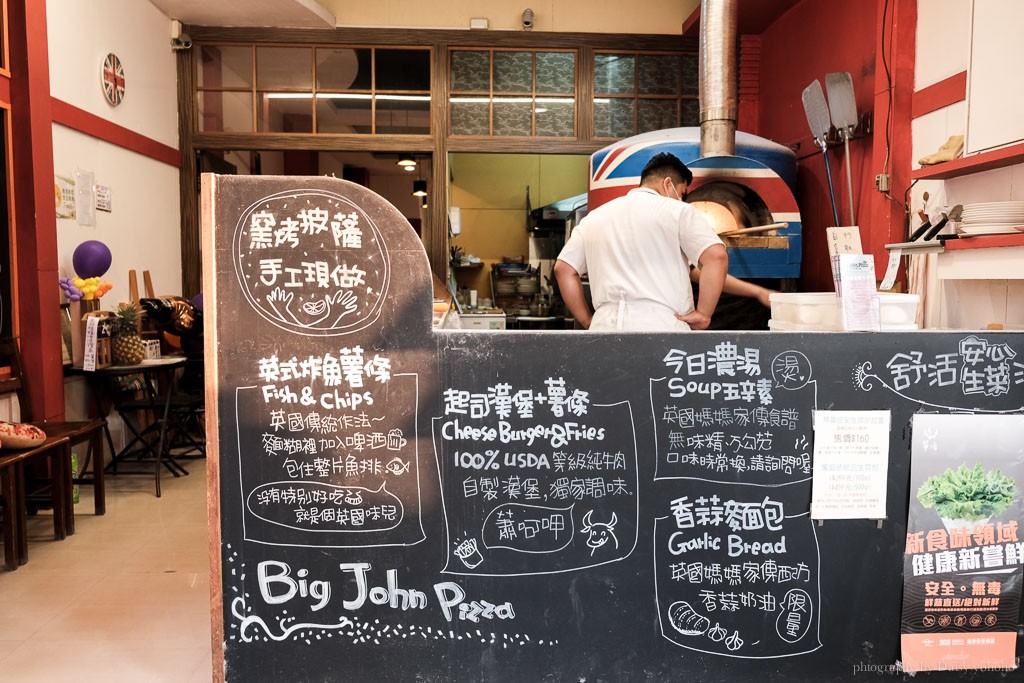 窯烤披薩
手工現做
英式炸魚薯條
Fish & Chips
英國傳統作法~
麵糊裡加入啤酒
包住整片魚排
沒有特別好吃
就是個英國味兒
起司漢堡+薯條
Cheese Burger&Fries
100% USDA 等級純牛肉
自製漢堡,獨家調味。
蕭咕呷
今日濃湯
燙。
Soup 五辛素
英國媽媽家傳食譜
無味精・勾芡
口味時常換,請詢問喔
香蒜麵包
Garlic Bread
英國媽媽家傳西方
香蒜奶油
限量
Big John Pizza
舒活
安心
生菜
售價$160
新食味領域
健康新嘗鮮
安全。無毒
鮮蔬直送/絕對新鮮
photography by Daisy yohoho